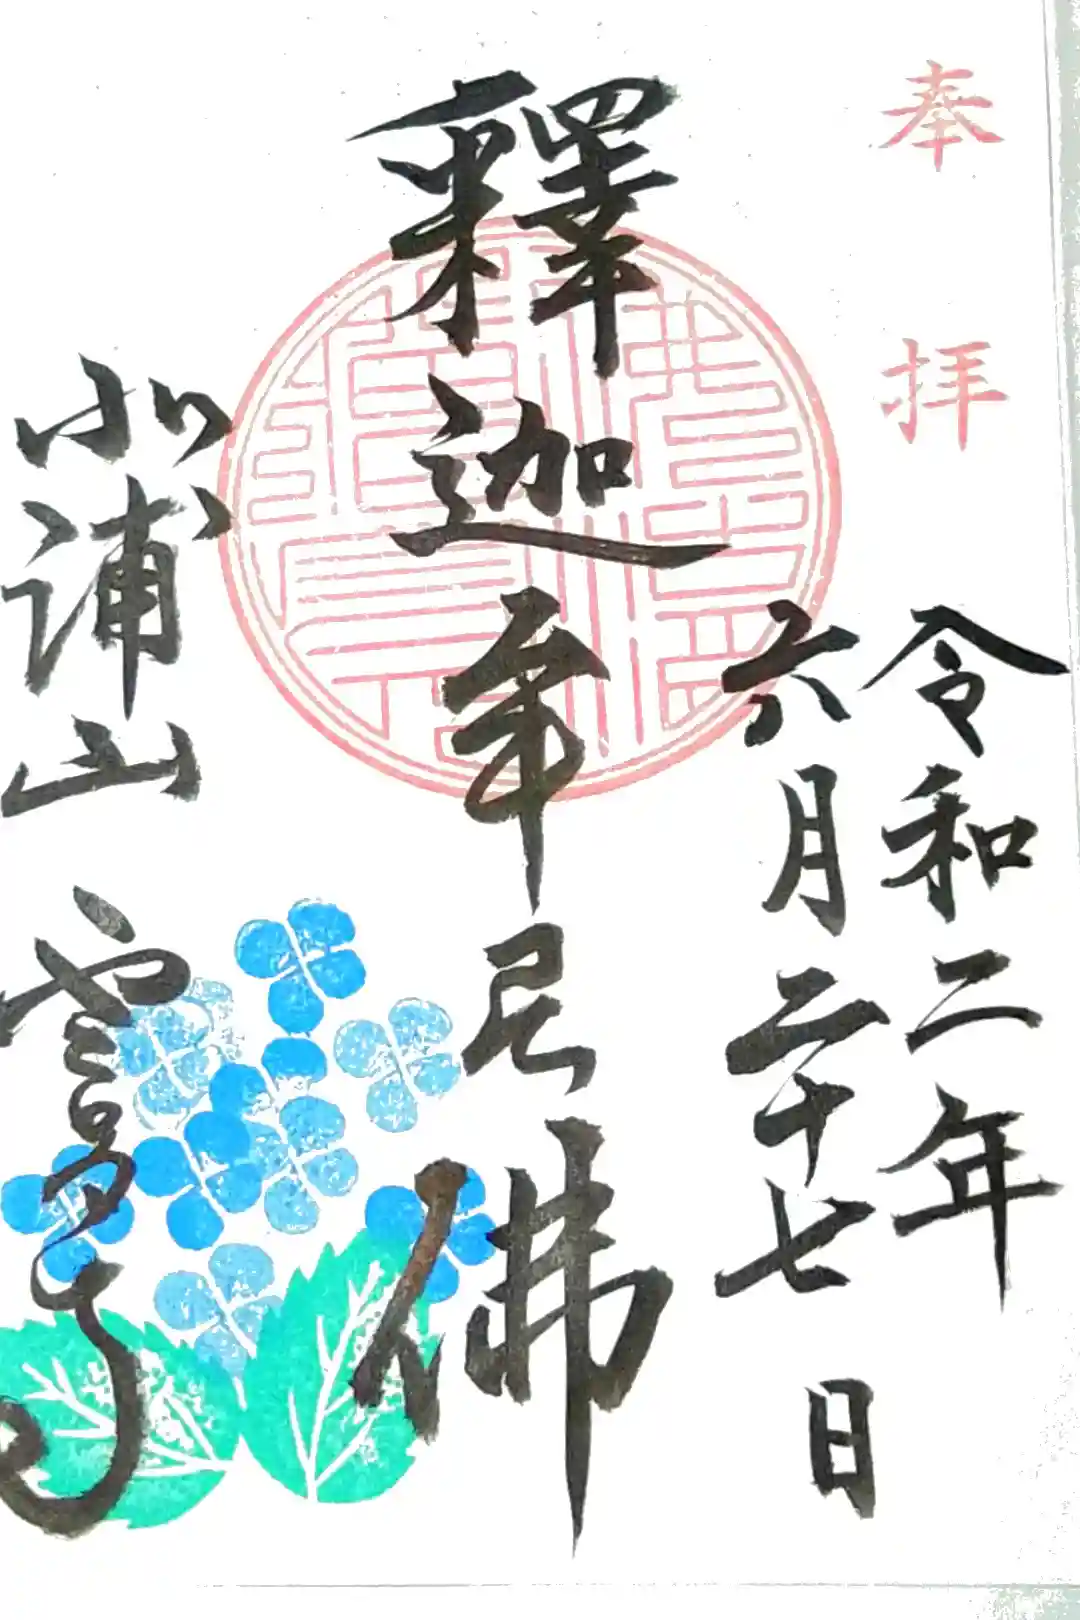 奉拝
令和二年
六月二十七日
釋迦牟尼佛
浦山